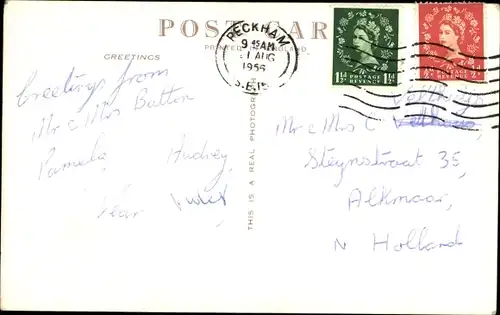 POST CARD
PRINTED IN ENGLAND
GREETINGS
PECKHAM
9 45 AM
1 AUG
1956
S.E.15
1½d POSTAGE REVENUE 1½d
POSTAGE REVENUE
Greetings from
Mr & Mrs Batton
Pamela, Audrey,
THIS IS A REAL PHOTOGRAPH
Mr & Mrs C
Steynstraat 35,
Alkmaar,
N Holland